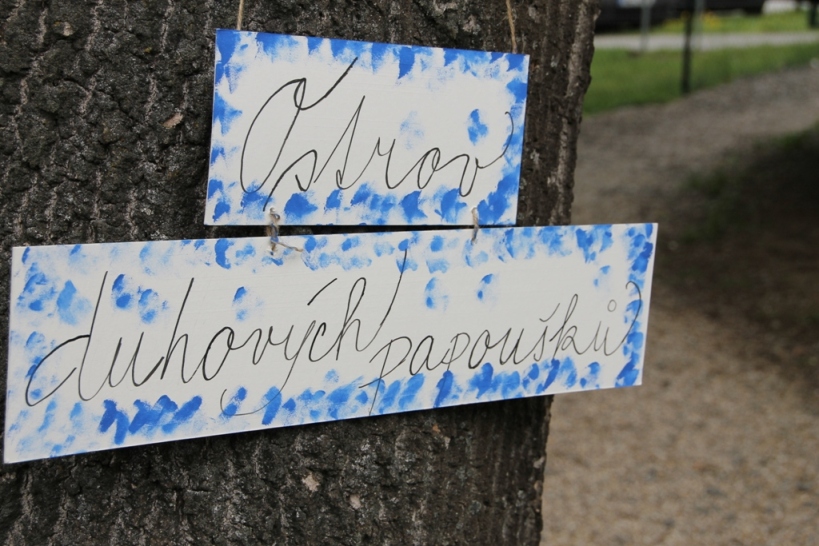 Ostrov
duhových papoušků